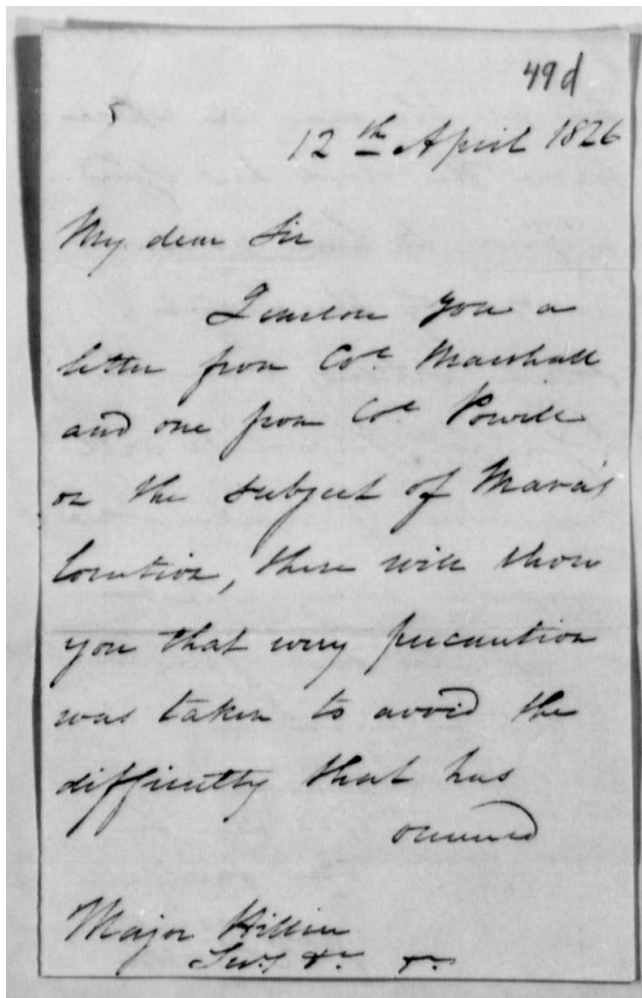 49d
12th April 1826
My dear Sir
I enclose you a
letter from Col. Marshall
and one from Col. Powell
on the subject of Mara's
location, these will show
you that every precaution
was taken to avoid the
difficulty that has
occurred
Major Hillier
&c &c